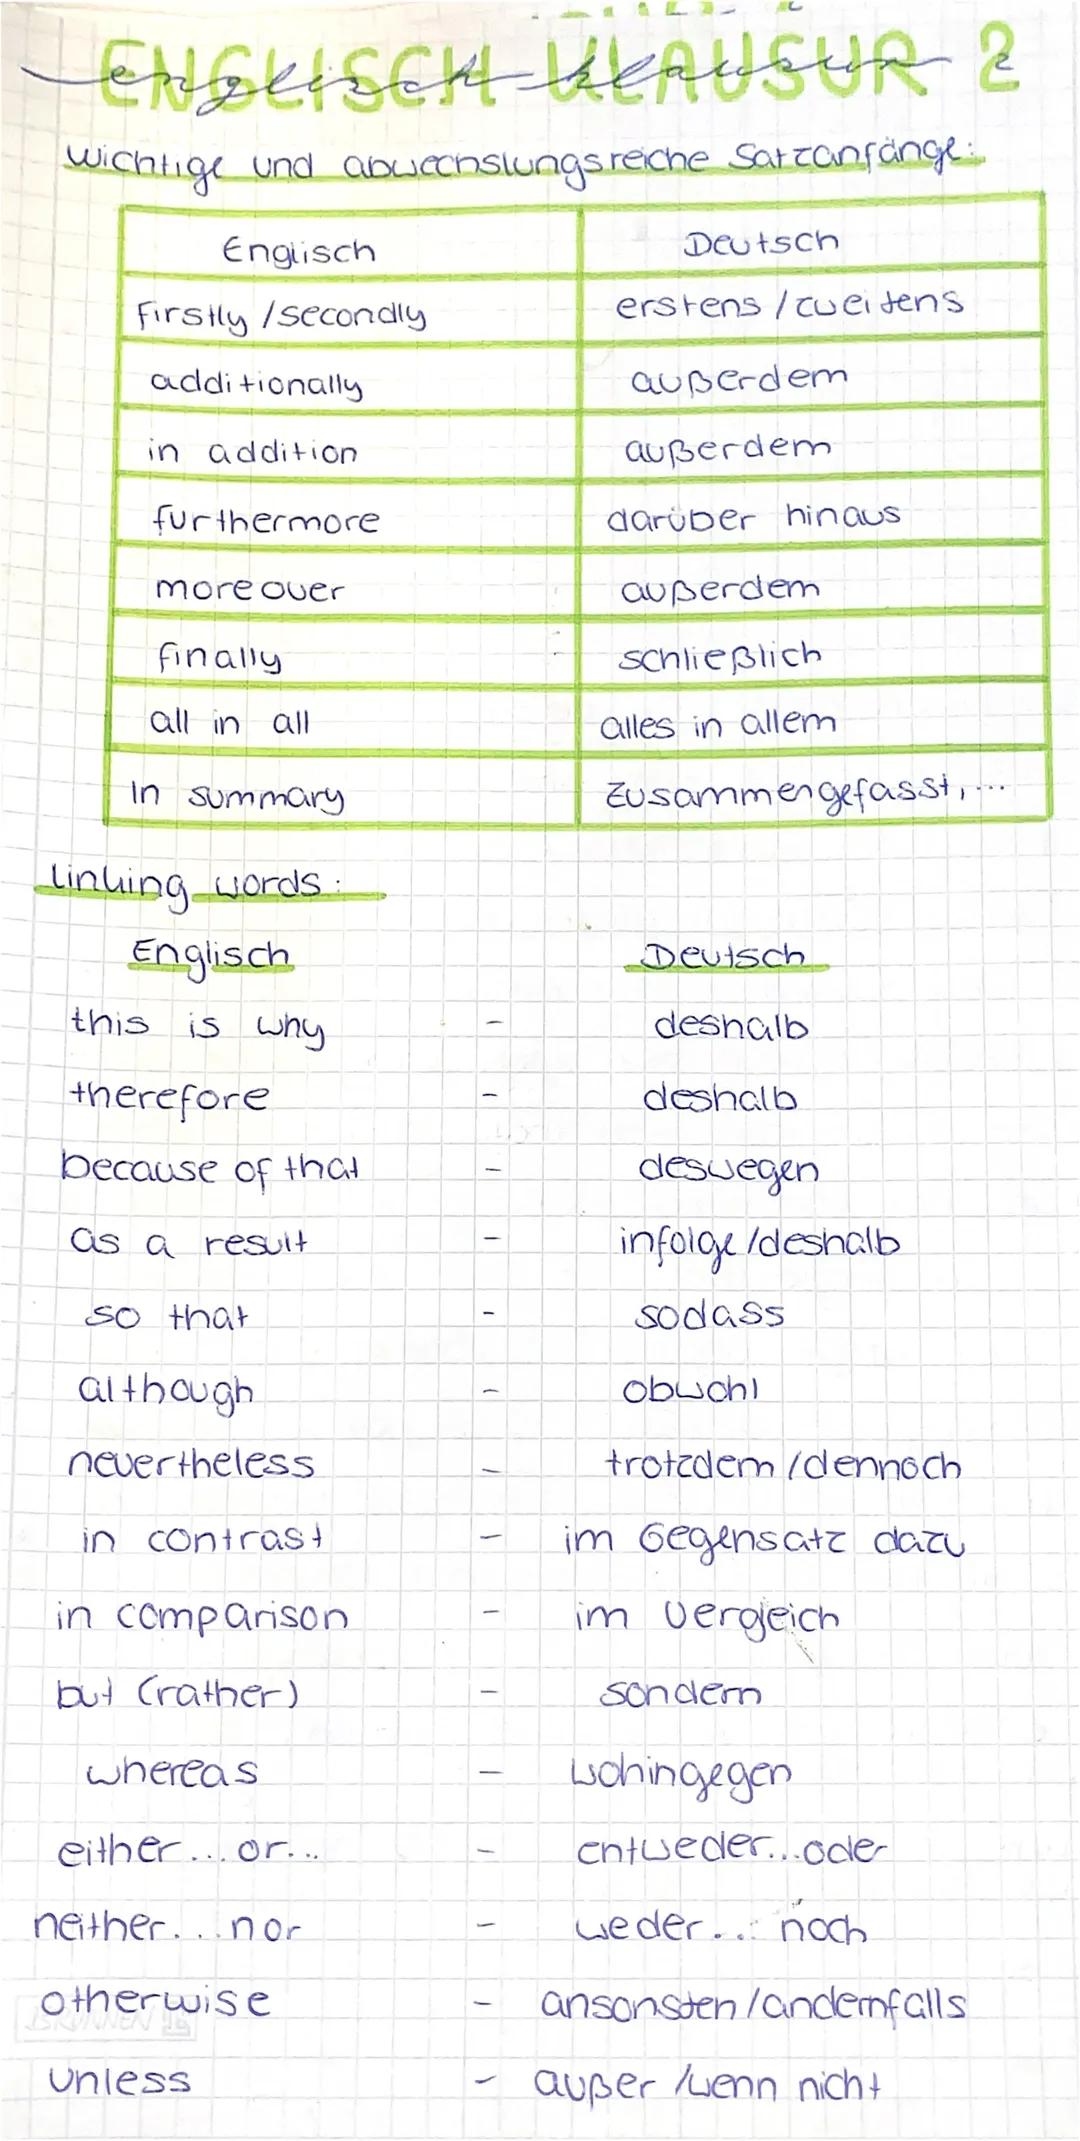 ENGLISCH KLAUSUR 2
englisch klausur 2
wichtige und abwechslungsreiche Satzanfänge:
Englisch Deutsch
firstly / secondly erstens / zweitens
additionally außerdem
in addition außerdem
furthermore darüber hinaus
moreover außerdem
finally schließlich
all in all alles in allem
in summary zusammengefasst,...
linking words:
Englisch Deutsch
this is why - deshalb
therefore - deshalb
because of that - deswegen
as a result - infolge/deshalb
so that - sodass
although - obwohl
nevertheless - trotzdem/dennoch
in contrast - im Gegensatz dazu
in comparison - im Vergleich
but (rather) - sondern
whereas - wohingegen
either...or... - entweder...oder
neither...nor - weder... noch
otherwise - ansonsten/andernfalls
BRUNNEN
unless - außer/wenn nicht